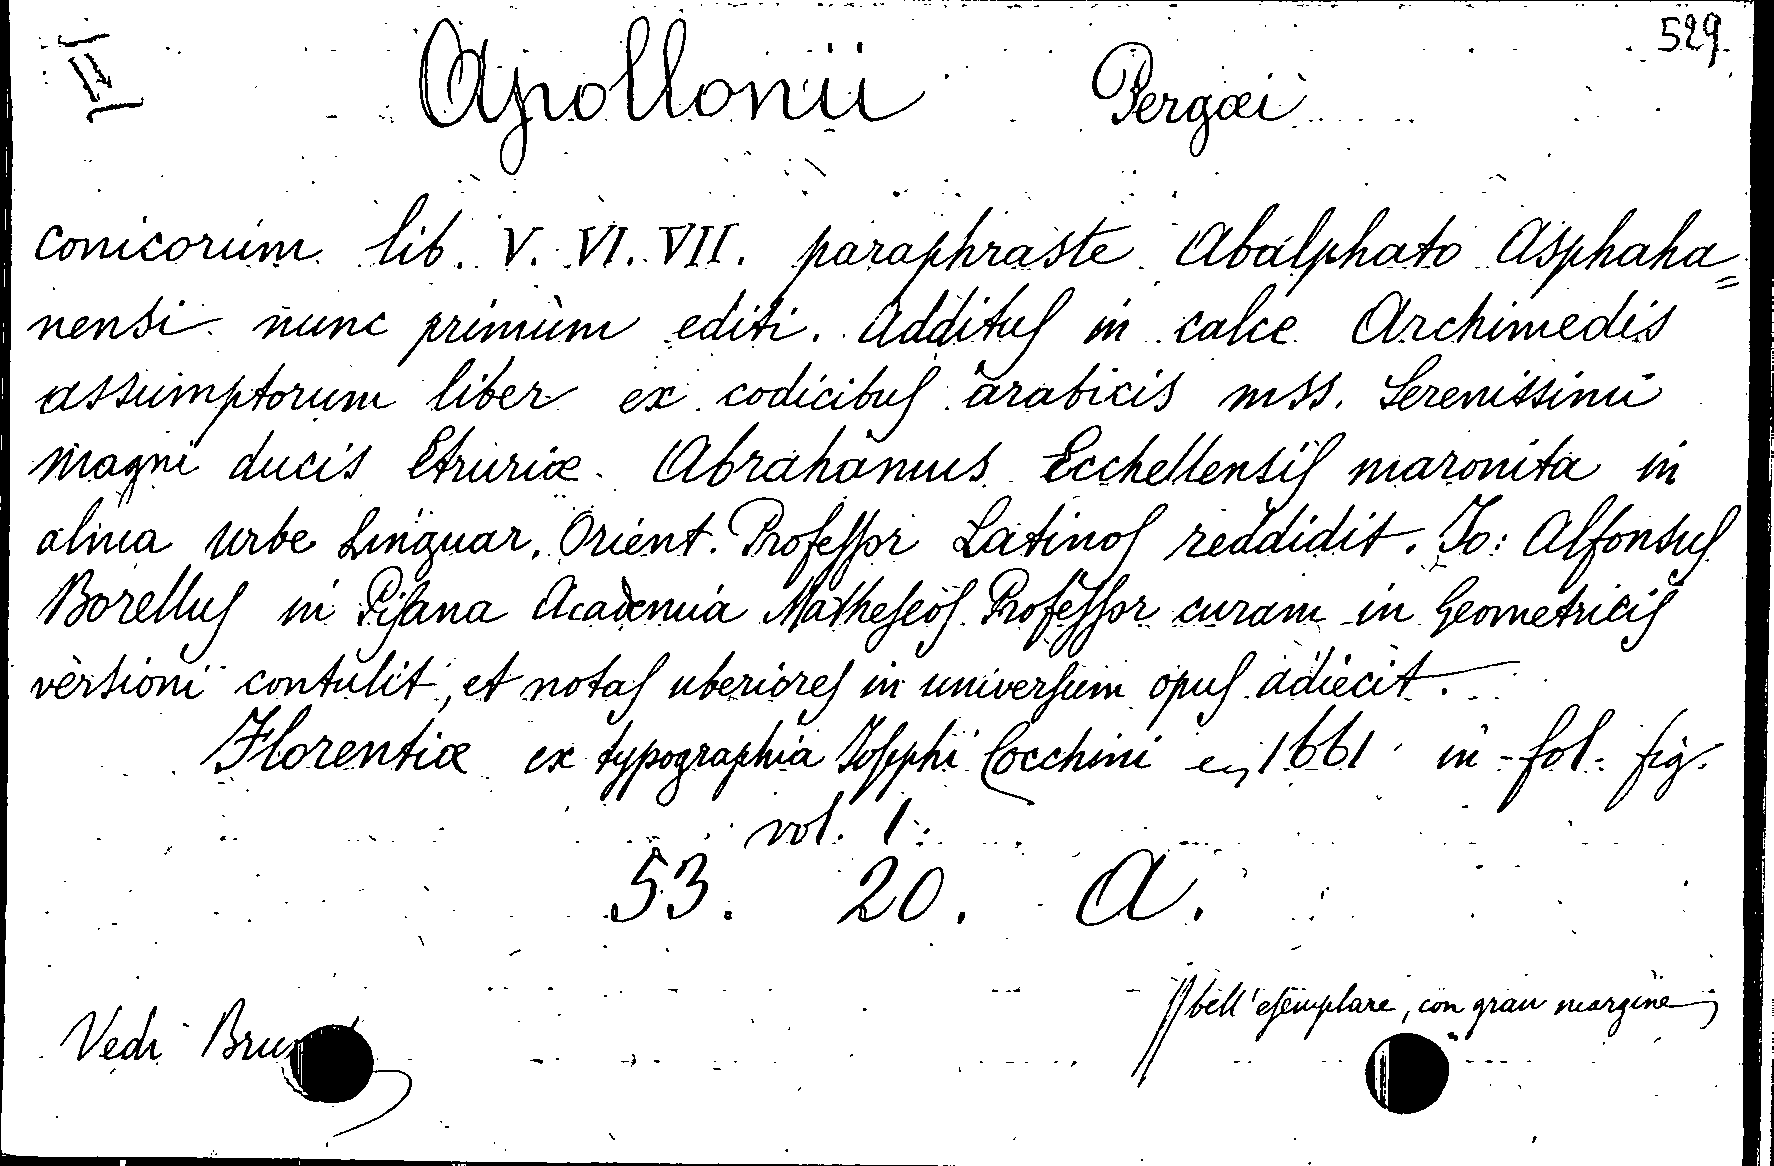 IV
529.
Apollonii Pergæi
conicorum lib. V. VI. VII. paraphraste Abalphato Asphaha=
nensi nunc primùm editi. Additus in calce Archimedis
assumptorum liber ex codicibus arabicis mss. Serenissimi
magni ducis Etruriæ. Abrahamus Ecchellensis maronita in
alma urbe Linguar. Orient. Professor Latinos reddidit. Io: Alfonsus
Borellus in Pisana Academia Matheseos Professor curam in Geometricis
versioni contulit, et notas uberiores in universum opus adiecit.
Florentiæ ex typographia Iosephi Cocchini 1661 in-fol. fig.
vol. 1.
53. 20. A.
bell'esemplare, con gran margine
Vedi